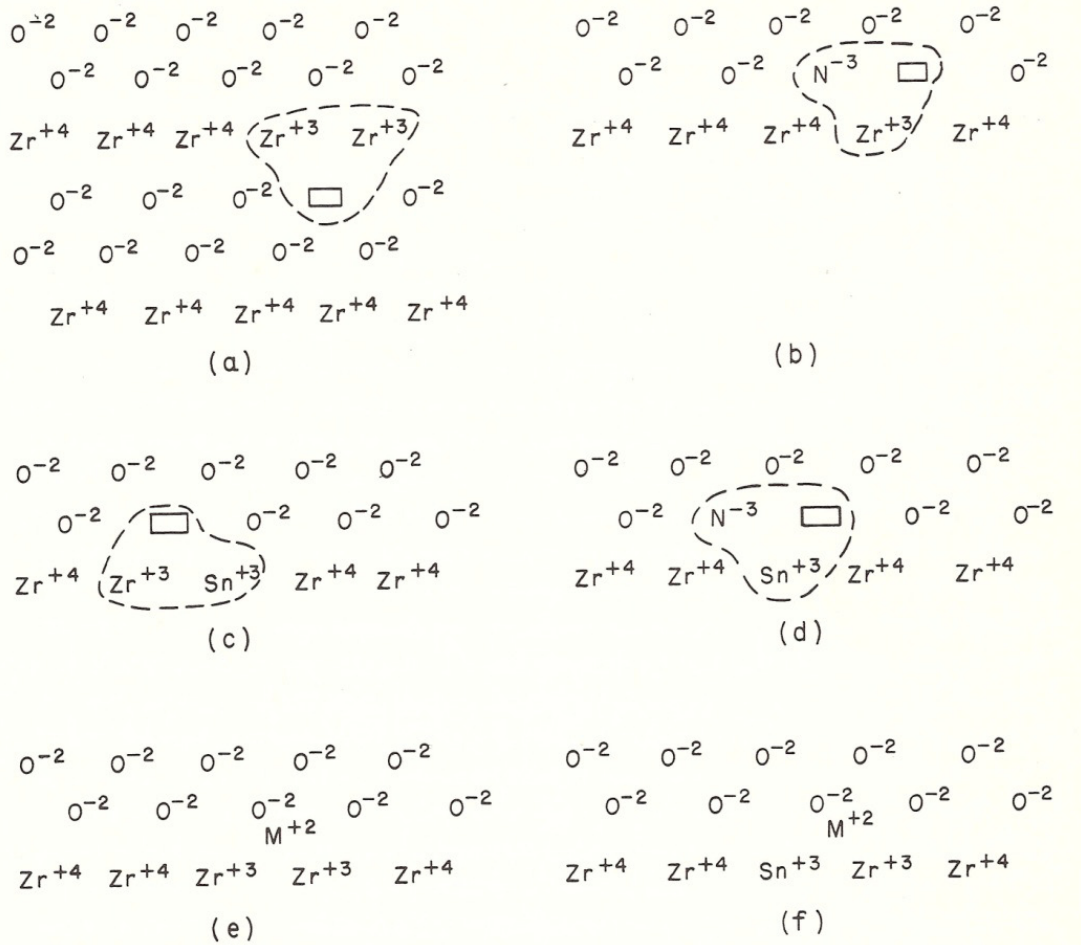 O⁻² O⁻² O⁻² O⁻² O⁻²
O⁻² O⁻² O⁻² O⁻² O⁻²
Zr⁺⁴ Zr⁺⁴ Zr⁺⁴ Zr⁺³ Zr⁺³
O⁻² O⁻² O⁻² O⁻²
O⁻² O⁻² O⁻² O⁻² O⁻²
Zr⁺⁴ Zr⁺⁴ Zr⁺⁴ Zr⁺⁴ Zr⁺⁴
(a)
O⁻² O⁻² O⁻² O⁻² O⁻²
O⁻² O⁻² N⁻³ O⁻²
Zr⁺⁴ Zr⁺⁴ Zr⁺⁴ Zr⁺³ Zr⁺⁴
(b)
O⁻² O⁻² O⁻² O⁻² O⁻²
O⁻² O⁻² O⁻² O⁻²
Zr⁺⁴ Zr⁺³ Sn⁺³ Zr⁺⁴ Zr⁺⁴
(c)
O⁻² O⁻² O⁻² O⁻² O⁻²
O⁻² N⁻³ O⁻² O⁻²
Zr⁺⁴ Zr⁺⁴ Sn⁺³ Zr⁺⁴ Zr⁺⁴
(d)
O⁻² O⁻² O⁻² O⁻² O⁻²
O⁻² O⁻² O⁻² O⁻² O⁻²
M⁺²
Zr⁺⁴ Zr⁺⁴ Zr⁺³ Zr⁺³ Zr⁺⁴
(e)
O⁻² O⁻² O⁻² O⁻² O⁻²
O⁻² O⁻² O⁻² O⁻² O⁻²
M⁺²
Zr⁺⁴ Zr⁺⁴ Sn⁺³ Zr⁺³ Zr⁺⁴
(f)